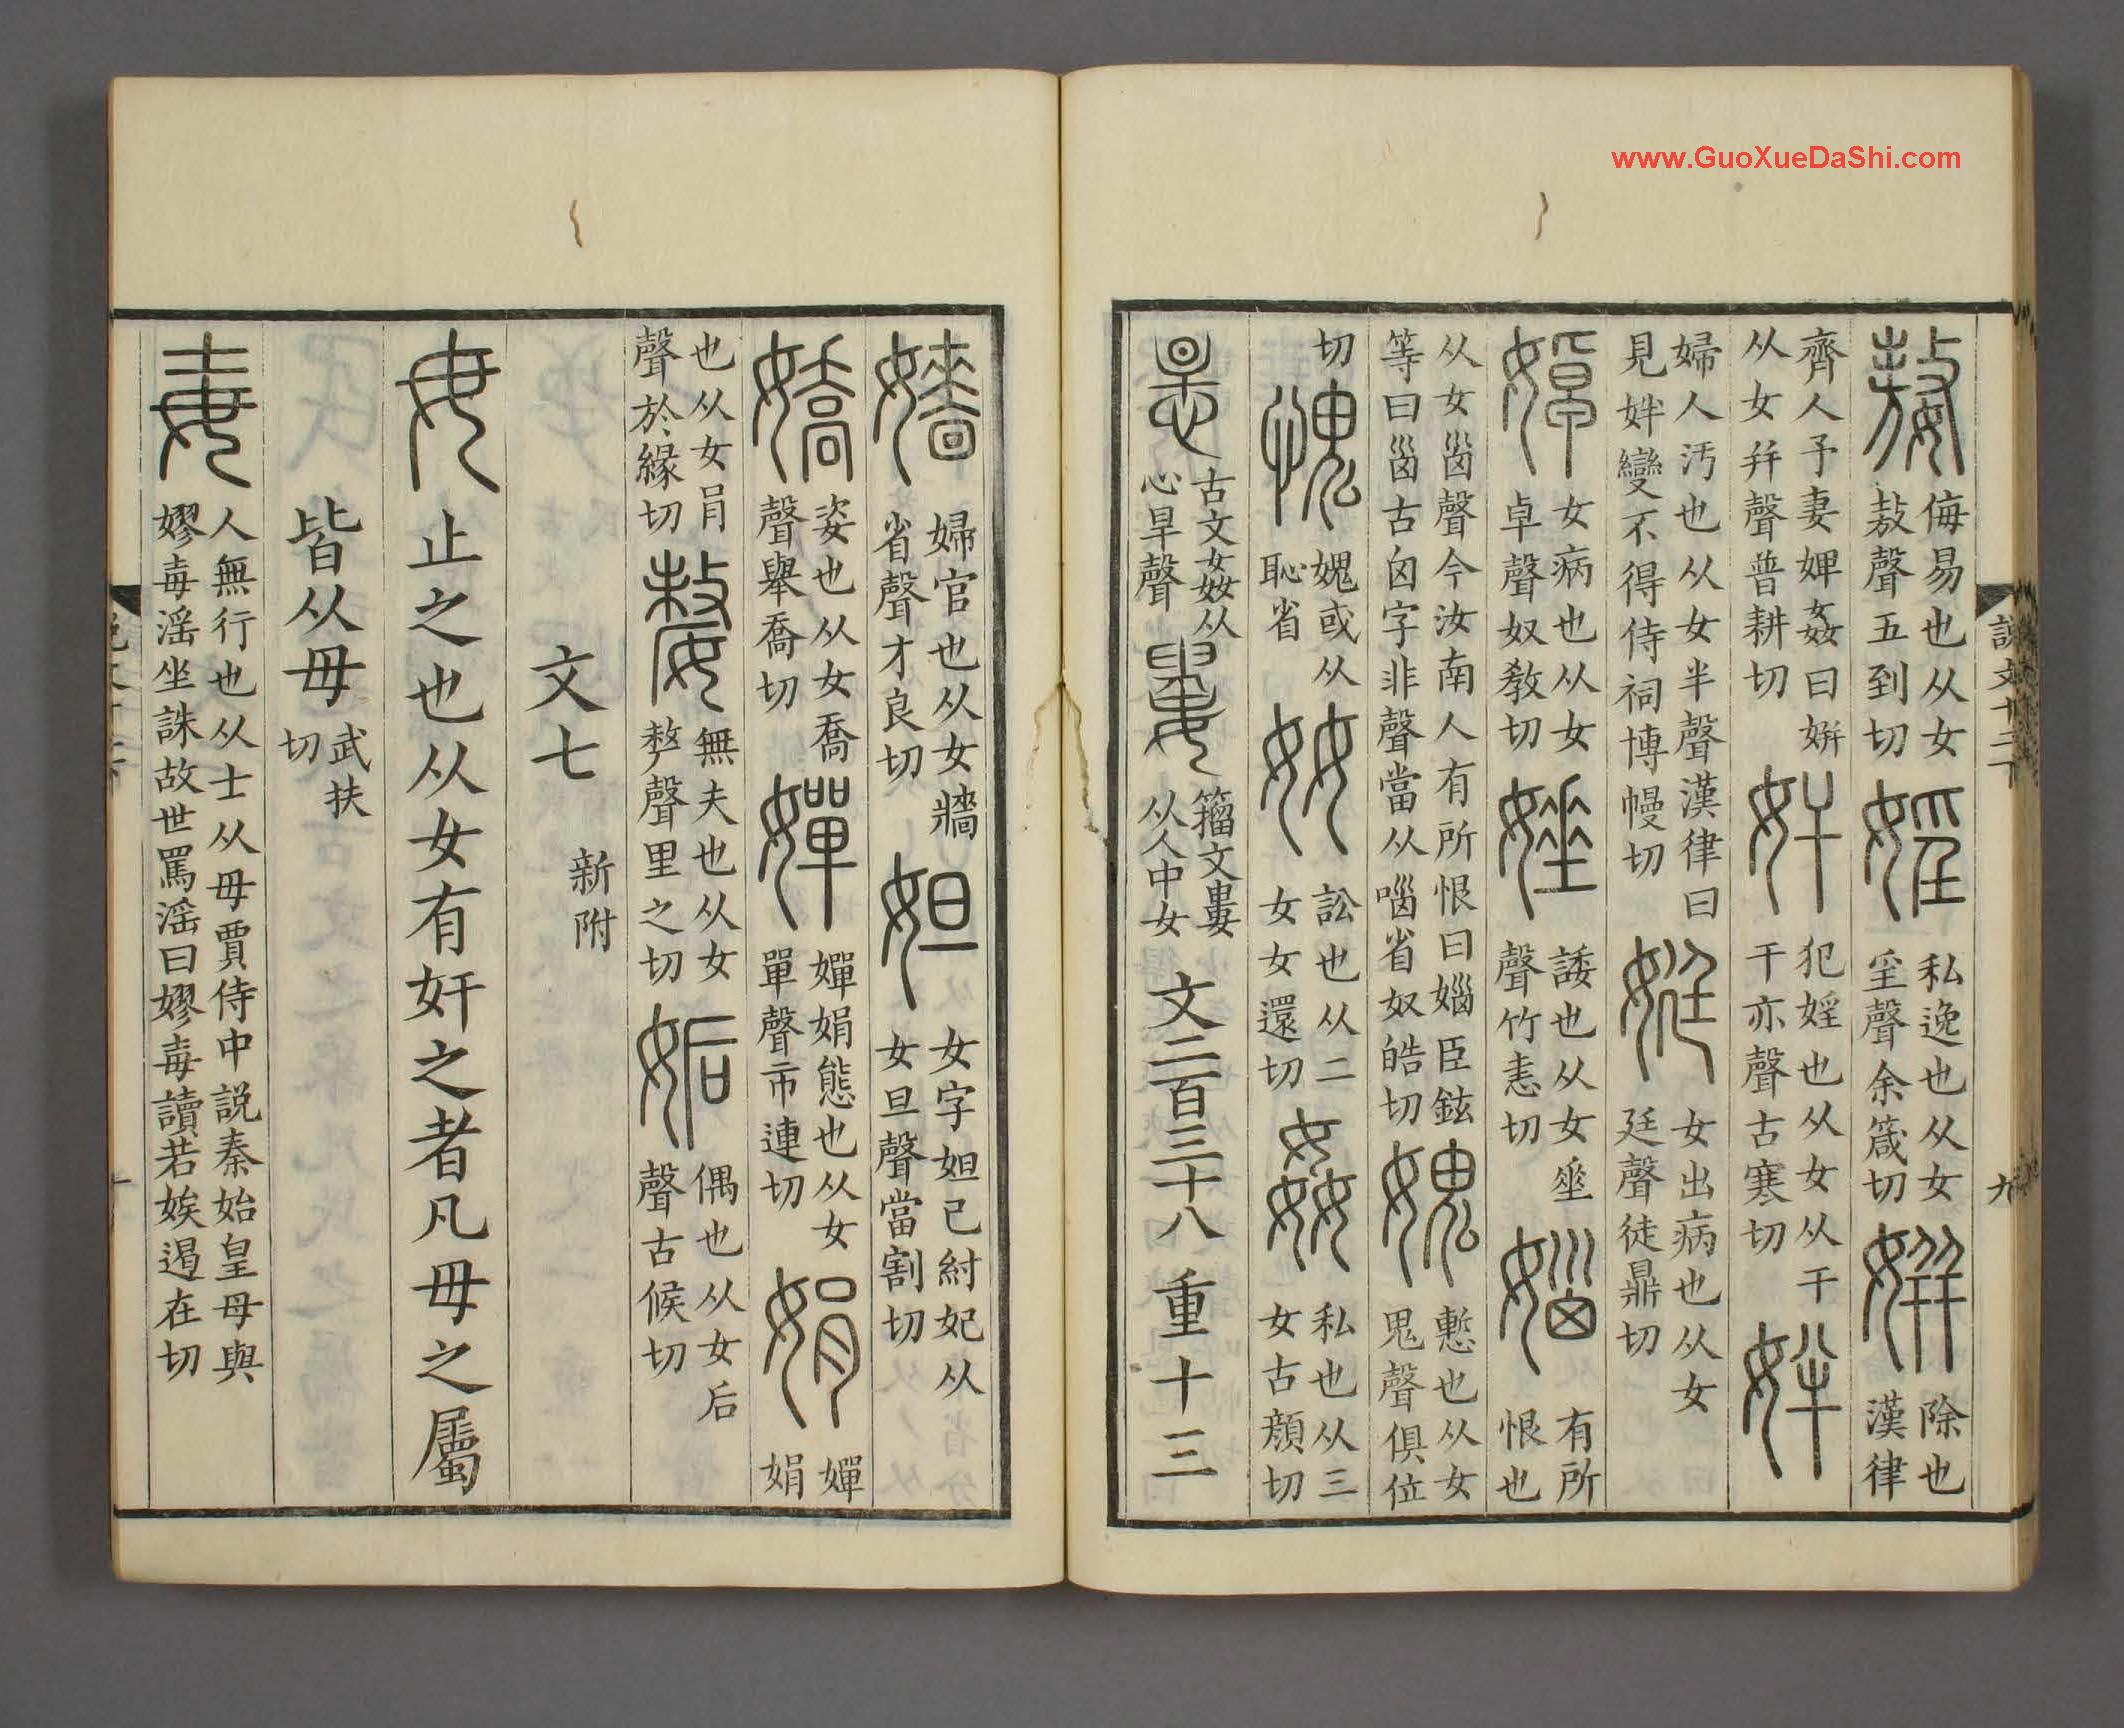 www.GuoXueDaShi.com
說文十二下 九
嫯 侮易也从女敖聲五到切 婬 私逸也从女㸒聲余箴切 姘 除也漢律
齊人予妻婢姦曰姘从女幷聲普耕切 奸 犯婬也从女从干干亦聲古寒切 姅
婦人汚也从女半聲漢律曰見姅變不得侍祠博幔切 娗 女出病也从女廷聲徒鼎切
婥 女病也从女卓聲奴敎切 娷 諉也从女垂聲竹恚切 㛴 有所恨也
从女㛴聲今汝南人有所恨曰媰臣鉉等曰𡿺古囟字非聲當从㛴省奴皓切 媿 慙也从女鬼聲俱位
切 愧 媿或从恥省 奻 訟也从二女女還切 姦 私也从三女古顔切
𢙶 古文姦从心旱聲 𡝤 籀文婁从人中女 文二百三十八 重十三
嬙 婦官也从女牆省聲才良切 妲 女字妲己紂妃从女旦聲當割切
嬌 姿也从女喬聲舉喬切 嬋 嬋娟態也从女單聲市連切 娟 嬋娟
也从女肙聲於緣切 嫠 無夫也从女𠩺聲里之切 姤 偶也从女后聲古候切
文七 新附
毋 止之也从女有奸之者凡毋之屬
皆从毋 武扶切
毐 人無行也从士从毋賈侍中說秦始皇母與嫪毐淫坐誅故世罵淫曰嫪毐讀若娭遏在切